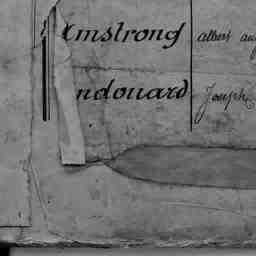 Armstrong Albert
ndouard Joseph